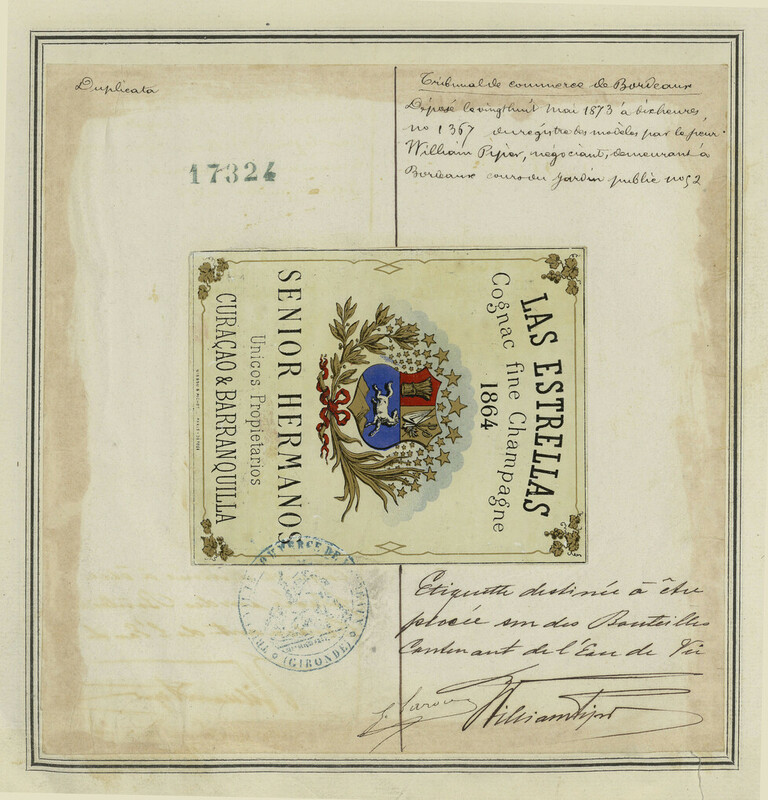 Duplicata
17324
Tribunal de commerce de Bordeaux
Déposé le vingt huit mai 1873 à dix heures,
no 1367 du registre des modèles par le sieur
William Piper, négociant, demeurant à
Bordeaux cours du Jardin public no 52
LAS ESTRELLAS
Cognac fine Champagne
1864
SENIOR HERMANOS
Unicos Propietarios
CURAÇAO & BARRANQUILLA
COMMERCE DE
(GIRONDE)
Etiquette destinée à être
placée sur des Bouteilles
Contenant de l'Eau de Vie
William Piper